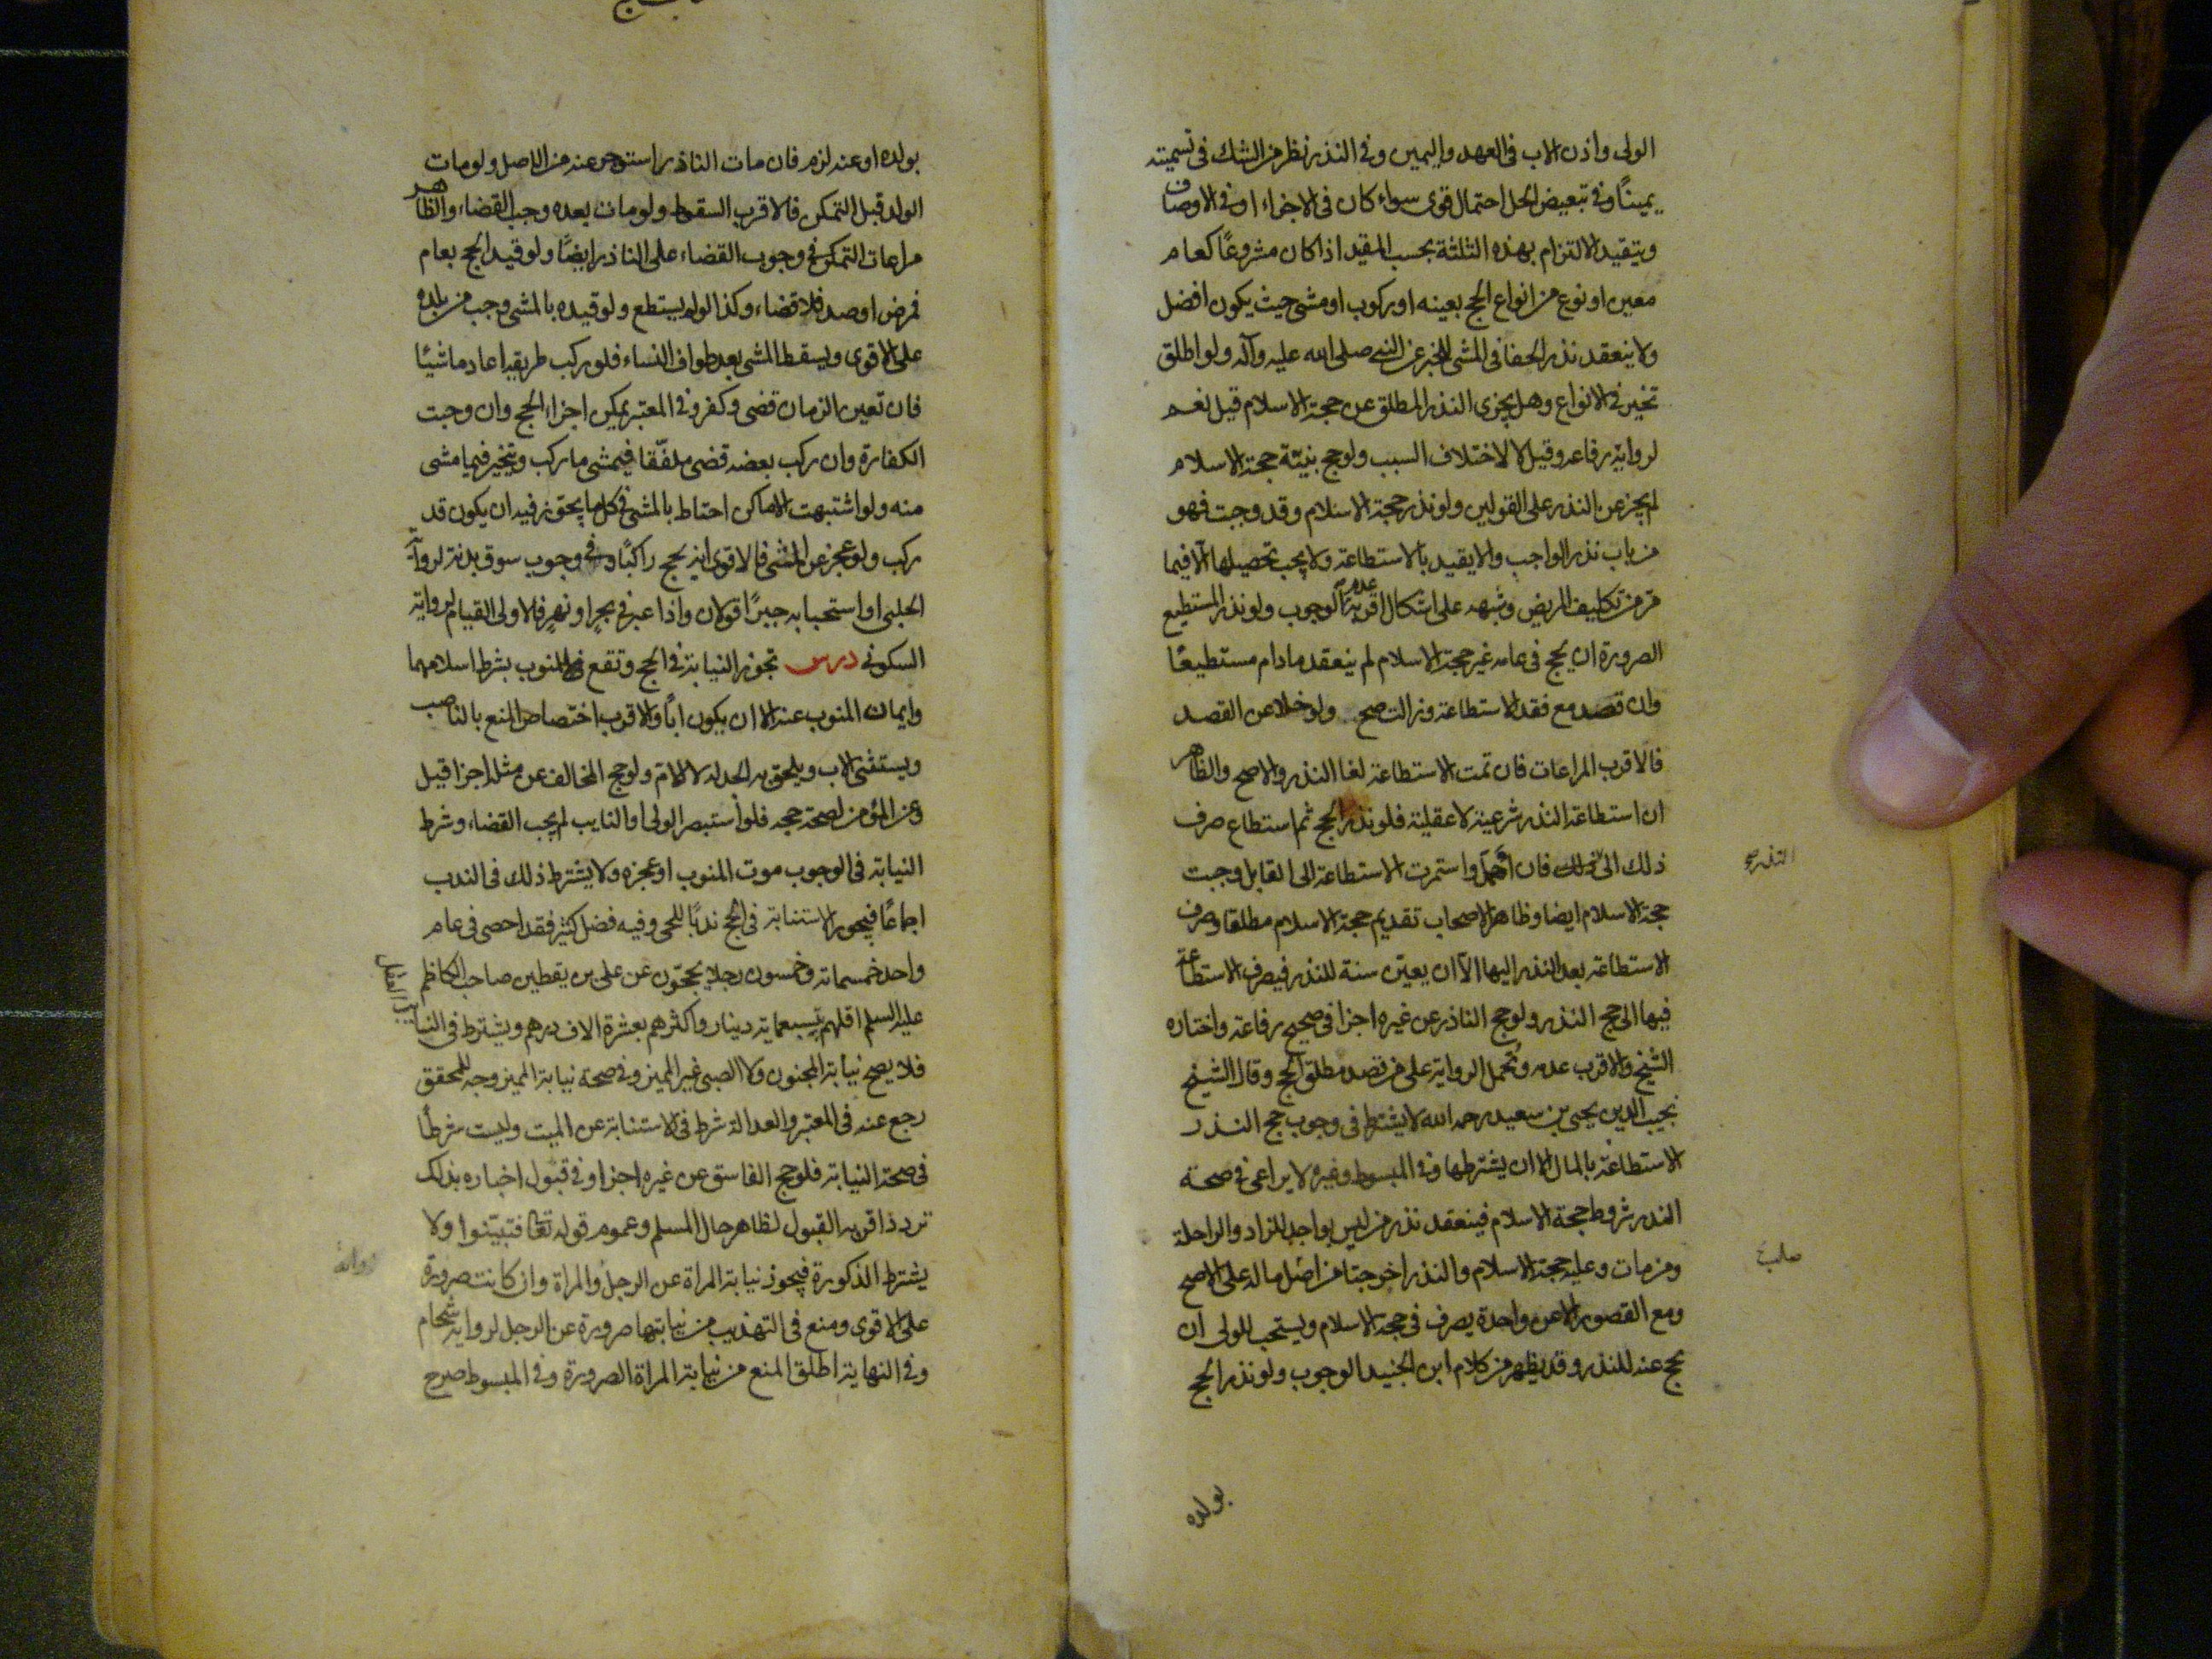 الولى واذن الاب فى العهد واليمين وفى النذر نظر من الشك فى تسميته
يمينًا وفى تبعيض الحل احتمال قوى سواء كان فى الاجزاء او فى الاوصاف
ويتقيد الالتزام بهذه الثلثة بحسب المقيد اذا كان مشروعًا كعام
معين او نوع من انواع الحج بعينه او ركوب او مشى حيث يكون افضل
ولا ينعقد نذر الحفا فى المشى للخبر عن النبى صلى الله عليه وآله ولو اطلق
تخير فى الانواع وهل يجزى النذر المطلق عن حجة الاسلام قيل نعم
لرواية رفاعه وقيل لا لاختلاف السبب ولو حج بنيّة حجة الاسلام
لم يجز عن النذر على القولين ولو نذر حجة الاسلام وقد وجبت فهو
من باب نذر الواجب والا يقيد بالاستطاعة ولا يجب تحصيلها الا فيما
مرّ من تكليف المريض وشبهه على اشكال اقربه عدم الوجوب ولو نذر المستطيع
الصرورة ان يحج فى عامه غير حجة الاسلام لم ينعقد ما دام مستطيعًا
وان قصد مع فقد الاستطاعة وزالت صح ولو خلا عن القصد
فالاقرب المراعات فان تمت الاستطاعة لغا النذر والاصح والظاهر
ان استطاعة النذر شرعية لا عقلية فلو نذر الحج ثم استطاع صرف
ذلك الى ذلك فان اهمل واستمرت الاستطاعة الى القابل وجبت
النذر صح
حجة الاسلام ايضا وظاهر الاصحاب تقديم حجة الاسلام مطلقا وصرف
الاستطاعة بعد النذر اليها الا ان يعيّن سنة للنذر فيصرف الاستطاعة
فيها الى حج النذر ولو حج الناذر عن غيره اجزا فى صحيح رفاعة واختاره
الشيخ والاقرب عدمه وتُحمل الرواية على من قصد مطلق الحج وقال الشيخ
نجيب الدين يحيى بن سعيد رحمه الله لا يشترط فى وجوب حج النذر
الاستطاعة بالمال الا ان يشترطها وفى المبسوط وغيره لا يراعى فى صحة
النذر شروط حجة الاسلام فينعقد نذر من ليس بواجد للزاد والراحلة
ومن مات وعليه حجة الاسلام والنذر اخرجتا من اصل ماله على الاصح
ومع القصور الا عن واحدة يصرف فى حجة الاسلام ويستحب للولى ان
يحج عنه للنذر وقد يظهر من كلام ابن الجنيد الوجوب ولو نذر الحج
بولده
بولده او عنه لزم فان مات الناذر استوجر عنه من الاصل ولو مات
الولد قبل التمكن فالاقرب السقوط ولو مات بعده وجب القضاء والظاهر
مراعات التمكن فى وجوب القضاء على الناذر ايضًا ولو قيد الحج بعام
فمرض او صد فلا قضاء وكذا لو لم يستطع ولو قيده بالمشى وجب من بلده
على الاقوى ويسقط المشى بعد طواف النساء فلو ركب طريقه اعاد ماشيًا
فان تعين الزمان قضى وكفر وفى المعتبر يمكن اجزاء الحج وان وجبت
الكفارة وان ركب بعضه قضى ملفّقا فيمشى ما ركب ويتخير فيما مشى
منه ولو اشتبهت الاماكن احتاط بالمشى فى كل ما يجوز فيه ان يكون قد
ركب ولو عجز عن المشى فالاقوى انه يحج راكبًا وفى وجوب سوق بدنة لرواية
الحلبى او استحبابه جبرًا قولان واذا عبر فى بحرٍ او نهرٍ فالاولى القيام لرواية
السكونى درس تجوز النيابة فى الحج وتقع للمنوب بشرط اسلامهما
وايمان المنوب عنه الا ان يكون ابًا والاقرب اختصاص المنع بالناصب
ويستثنى الاب ويلحق به الجد له لا للام ولو حج المخالف عن مثله اجزا قيل
وعن المؤمن لصحة حجه فلو استبصر الولى او النايب لم يجب القضاء وشرط
النيابة فى الوجوب موت المنوب او عجزه ولا يشترط ذلك فى الندب
اجماعًا فيجوز الاستنابة فى الحج ندبًا للحى وفيه فضل كثير فقد احصى فى عام
واحد خمسماته وخمسون رجلا يحجّون عن على بن يقطين صاحب الكاظم
عليه السلم اقلهم بتسبعماية دينار واكثرهم بعشرة الاف درهم ويشترط فى النايب العقل
فلا يصح نيابة المجنون ولا الصبى غير المميز وفى صحة نيابة المميز وجه للمحقق
رجع عنه فى المعتبر والعدالة شرط فى الاستنابة عن الميت وليست شرطًا
فى صحة النيابة فلو حج الفاسق عن غيره اجزا وفى قبول اخباره بذلك
تردد اقربه القبول لظاهر حال المسلم وعموم قوله تعا فتبيّنوا ولا
يشترط الذكورة فيجوز نيابة المراة عن الرجل والمراة وان كانت صرورة
على الاقوى ومنع فى التهذيب من نيابتها صرورة عن الرجل لرواية شحام
وفى النهاية اطلق المنع من نيابة المراة الصرورة وفى المبسوط صرح